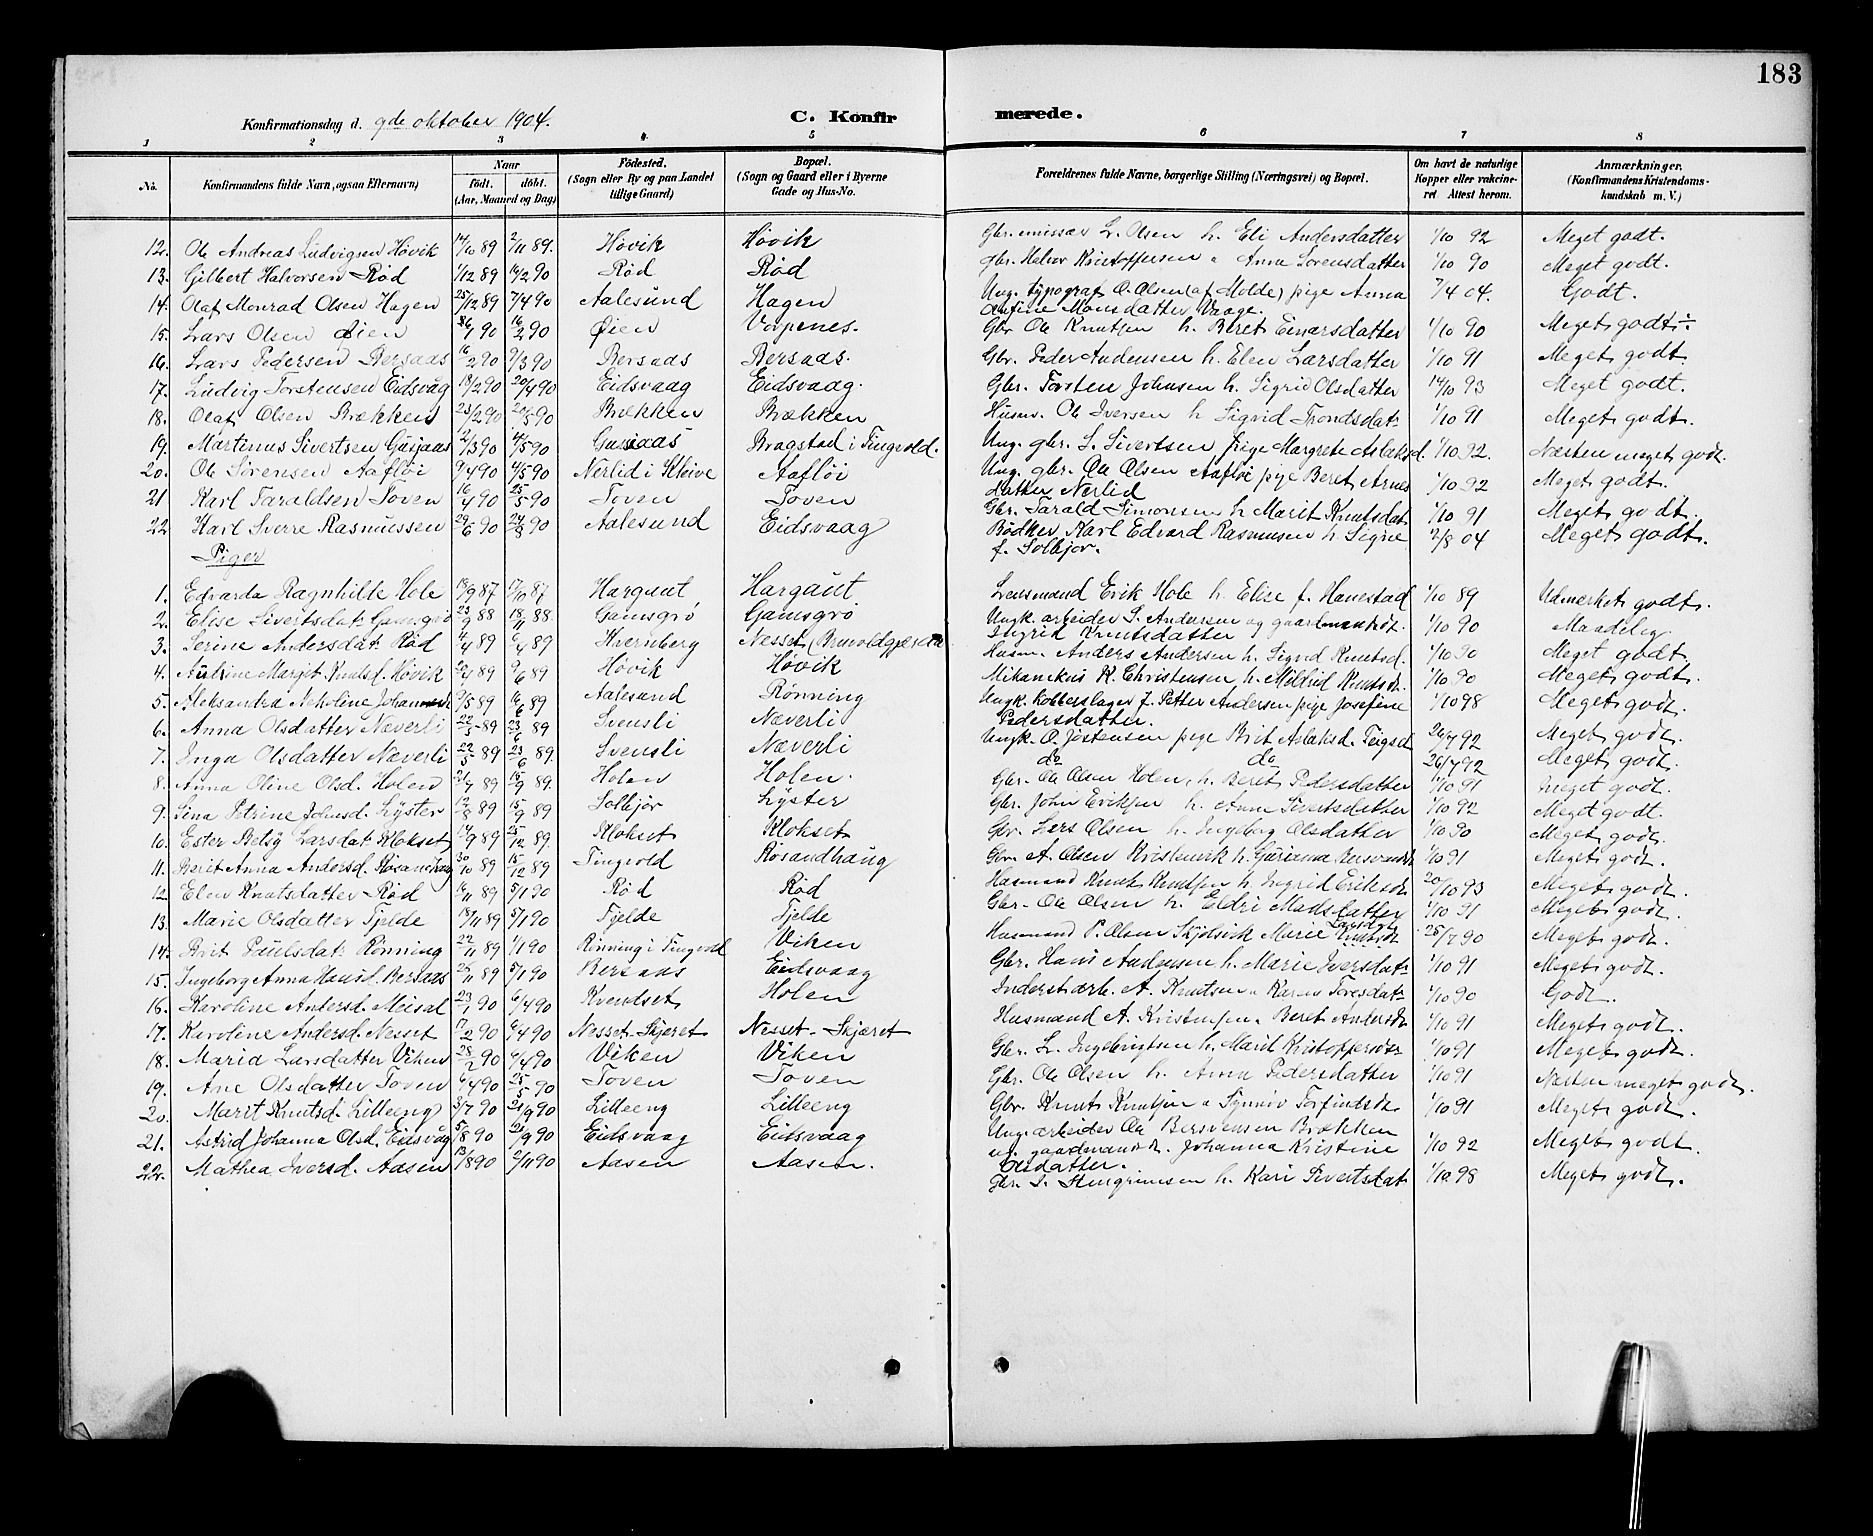 183
Konfirmationsdag d. 9de oktober 1904. C. Konfirmerede.
1 2 3 4 5 6 7 8
No. Konfirmandens fulde Navn, ogsaa Efternavn) Naar født. döbt. (Aar, Maaned og Dag) Födested. (Sogn eller By og paa Landet tillige Gaard) Bopæl. (Sogn og Gaard eller i Byerne Gade og Hus-No. Forældrenes fulde Navne, borgerlige Stilling (Næringsvei) og Bopæl. Om havt de naturlige Kopper eller vakcineret Attest herom. Anmærkninger. (Konfirmandens Kristendomskundskab m. V.)
12. Ole Andreas Ludvigsen Høvik 14/10 89 2/11 89. Høvik Høvik Gbr. L. Olsen h. Eli Andersdatter 1/10 92 Meget godt.
13. Gilbert Halvorsen Rød 1/12 89 16/2 90 Rød Rød gbr. Halvor Kristoffersen Anna Sorensdatter 1/10 90 Meget godt.
14. Olaf Monrad Olsen Hagen 25/12 89 7/4 90 Aalesund Hagen Ung. typograf O. Olsen (af Molde) pige Anna 7/4 04. Godt.
Monsdatter Vaage.
15. Lars Olsen Øien 90 16/2 90 Øien Vorpenes. Gbr Ole Knutsen h. Beret Einarsdatter 1/10 90 Meget godt
16. Lars Pedersen Bersaas 16/2 90 9/3 90 Bersaas Bersaas. Gbr. Peder Andersen h. Elen Larsdatter 1/10 91 Meget godt
17. Ludvig Torstensen Eidsvåg 18/2 90 20/4 90 Eidsvaag Eidsvaag. Gbr. Torsten Johnsen h. Sigrid Olsdatter 14/10 93 Meget godt.
18. Olaf Olsen Brækken 23/2 90 20/5 90 Brækken Brækken Husm. Ole Iversen h Sigrid Trondsdat: 1/10 91 Meget godt.
19. Martinus Sivertsen Gusjaas 2/3 90 4/5 90 Gusiaas Bragstad i Tingvold. Ung. gbr. S. Sivertsen pige Margrete Aslaksd. 1/10 92. Næsten meget godt.
20. Ole Sørensen Aafløi 9/4 90 4/5 90 Nerlid i Kleive Aafløi Ung. gbr. Ole Olsen Aafløi pige Beret Arnes 1/10 92 Meget godt.
datter Nerlid
21 Karl Taraldsen Toven 16/4 90 25/5 90 Toven Toven Gbr. Tarald Simonsen h Marit Knutsdat 1/10 91 Meget godt.
22 Karl Sverre Rasmussen 29/6 90 24/8 90 Aalesund Eidsvaag Bødker Karl Edvard Rasmusen h. Signe 12/8 04 Meget godt.
f. Solbjør.
Piger
1. Edvarda Ragnhilde Hole 18/9 87 17/10 87 Hargaut Hargaut Lensmand Erik Hole h. Elise f. Hanestad 1/10 89 Udmerket godt.
2. Elise Sivertsdat: Gamsgrø 23/9 88 18/11 88. Gamsgrø Gamsgrø Ungk. arbeider S. Andersen og gaardmandsdt. 1/10 90 Maadelig
Ingrid Knutsdatter
3. Serine Andersdat: Rød 4/4 89 6/4 89 Hvernberg Nesset Husm. Anders Andersen h. Sigrid Knutsd. 1/10 90 Meget godt
4. Margit Knutsd. Høvik 22/4 89 9/6 89 Høvik Høvik Mikanikus K. Christensen h. Mildrid Knutsdt. 1/10 90 Meget godt.
5. Aleksandra Nekoline 9/5 89 16/6 89 Aalesund Rønning Ungk. kobberslager J. Petter Andersen pige Josefine 1/10 98 Meget godt.
Pedersdatter.
6. Anna Olsdatter Næverli 22/5 89 23/6 89. Svensli Næverli Ungk. O. Jostensen pige Brit Aslaksd. Teigset 26/7 92 Meget godt.
7. Inga Olsdatter Næverli 22/5 89 23/6 89. Svensli Næverli do do 26/7 92 Meget godt.
8. Anna Oline Olsd. Holen 21/7 89 15/9 89. Holen Holen. Gbr. Ole Olsen Holen, h. Beret Pedersdatter 1/10 91 Meget godt.
9. Sina Petrine Johnsd. Lyster 12/8 89 15/9 89 Solbjør Lyster Gbr. John Eriksen h. Anne Sivertsdatter 1/10 92 Meget godt.
10. Ester Betsy Larsdat: Klokset 14/9 89 25/12 89. Klokset Klokset Gbr. Lars Olsen h. Ingeborg Olsdatter 1/10 90 Meget godt.
11. Berit Anna Andersd. Røsandhaug 30/10 89 15/12 89 Tingvold Røsandhaug Gbr. A. Olsen h. Gurianna 1/10 91 Meget godt.
12 Elen Knutsdatter Rød 14/11 89 5/1 90 Rød Rød Husmand Knut Knutsen h. Ingrid Eriksdt 20/10 93 Meget godt.
13. Marie Olsdatter Fjelde 18/11 89 5/1 90 Fjelde Fjelde Gbr. Ole Olsen h. Eldri Madsdatter 1/10 91 Meget godt.
14. Brit Paulsdat: Rønning 22/11 89 1/1 90 Rønning i Tingvold Viken Husmand P. Olsen Marie 25/7 90 Meget godt.
15. Ingeborg Anna Hansd. Bersaas 25/11 89 5/1 90 Bersaas Eidsvaag Gbr. Hans Andersen h. Marie Iversdat: 1/10 91 Meget godt.
16. Karoline Andersd. Meisal 23/1 90 6/4 90 Kvendset Holen Inderstarb. A. Knutsen Karen Toresdat: 1/10 90 Godt.
17. Karoline Andersd. Nesset 17/2 90 6/4 90 Nesset-Skjæret Nesset-Skjæret Husmand A. Kristensen Beret Andersdt 1/10 91 Meget godt.
18. Maria Larsdatter Viken 28/2 90 6/4 90 Viken Viken Gbr. L. Ingebrigtsen h. Marit Kristoffersdt 1/10 91 Meget godt.
19. Ane Olsdatter Toven 6/4 90 25/5 90 Toven Toven Gbr. Ole Olsen h. Anna Pedersdatter 1/10 91 Næsten meget godt.
20. Marit Knutsd. Lilleeng 3/7 90 21/9 90 Lilleeng Lilleeng Gbr. Knut Knutsen Synnøv Torfinnsdt 1/10 91 Meget godt.
21. Astrid Johanna Olsd. Eidsvåg 5/8 90 21/9 90 Eidsvaag Eidsvaag Ung. arbeider Ole Bersvensen Brækken 1/10 92 Meget godt.
ug. gaardmandsdt. Johanna Kristine
Olsdatter.
22. Mathea Iversd. Aasen 13/8 90 2/11 90 Aasen Aasen. Gbr. I. Steingrimsen h. Kari Sivertsdat: 1/10 98 Meget godt.